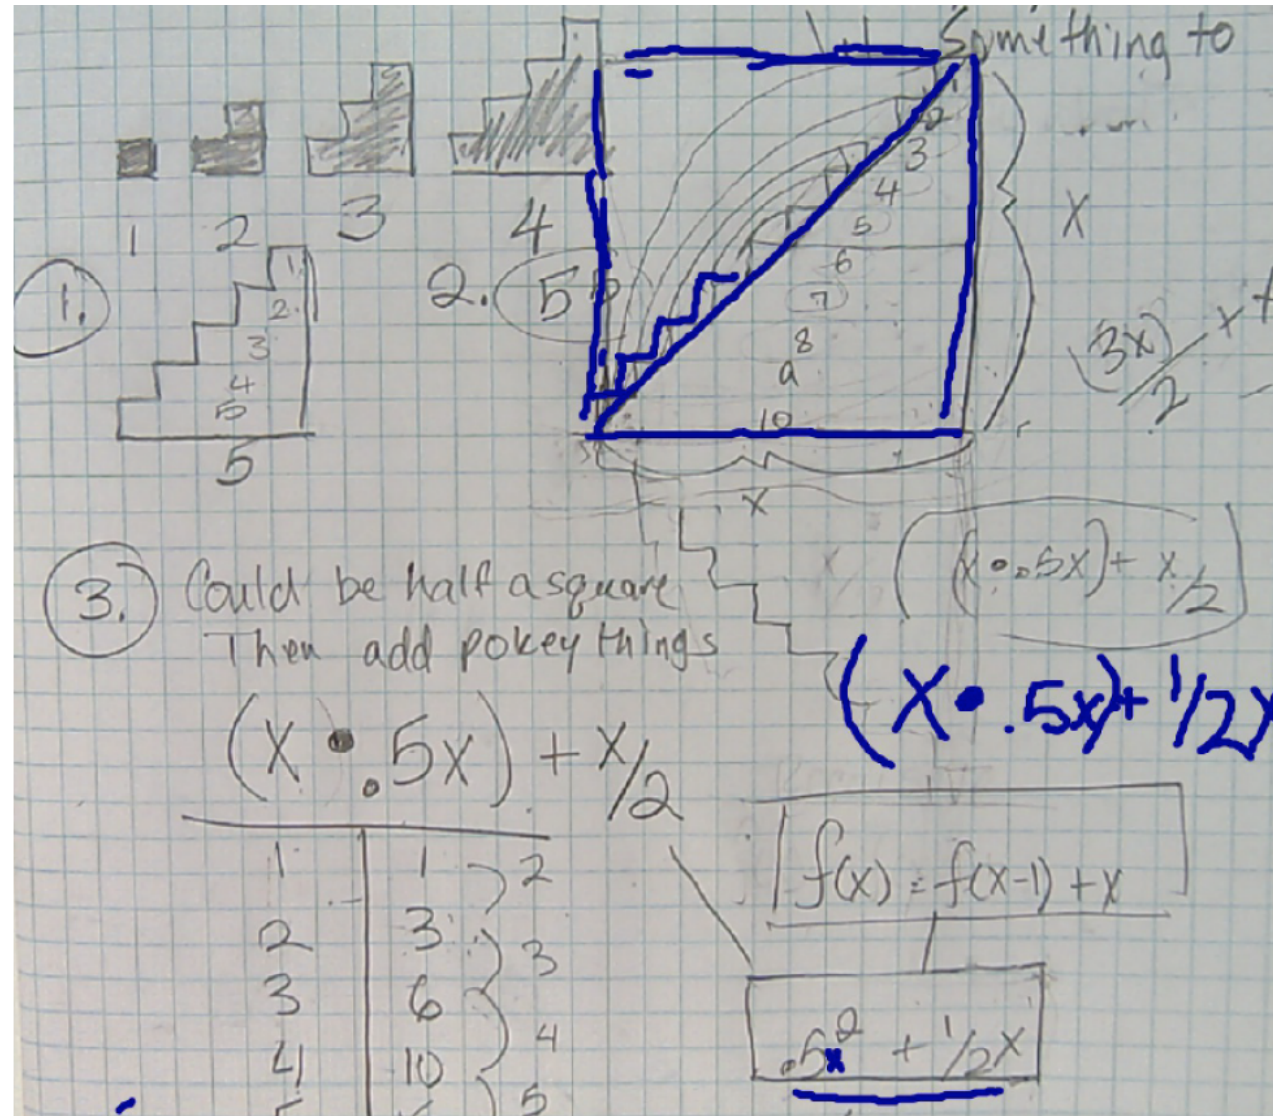 Something to
1
2
3
4
1.
1
2
3
4
5
5
2. 55
2
3
4
5
6
7
8
9
10
X
X
(3x)/2
3. Could be half a square
Then add pokey things
(X • .5x) + x/2
(X • .5x) + x/2
(X • .5x) + 1/2x
1 1 2
2 3 3
3 6 4
4 10 5
f(x) = f(x-1) + x
.5x² + 1/2x